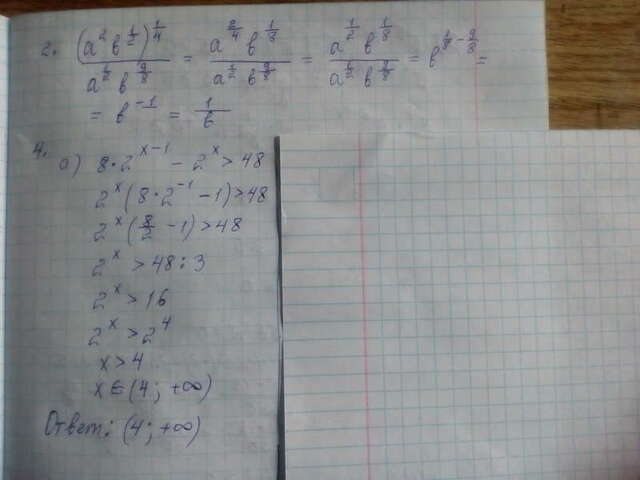 2. (a²в^(1/2))^(1/4) / (a^(1/2) в^(9/8)) = a^(2/4) в^(1/8) / (a^(1/2) в^(9/8)) = a^(1/2) в^(1/8) / (a^(1/2) в^(9/8)) = в^(1/8 - 9/8) =
= в^(-1) = 1/в
4. а) 8·2^(x-1) - 2^x > 48
2^x (8·2^(-1) - 1) > 48
2^x (8/2 - 1) > 48
2^x > 48 : 3
2^x > 16
2^x > 2^4
x > 4
x ∈ (4; +∞)
Ответ: (4; +∞)